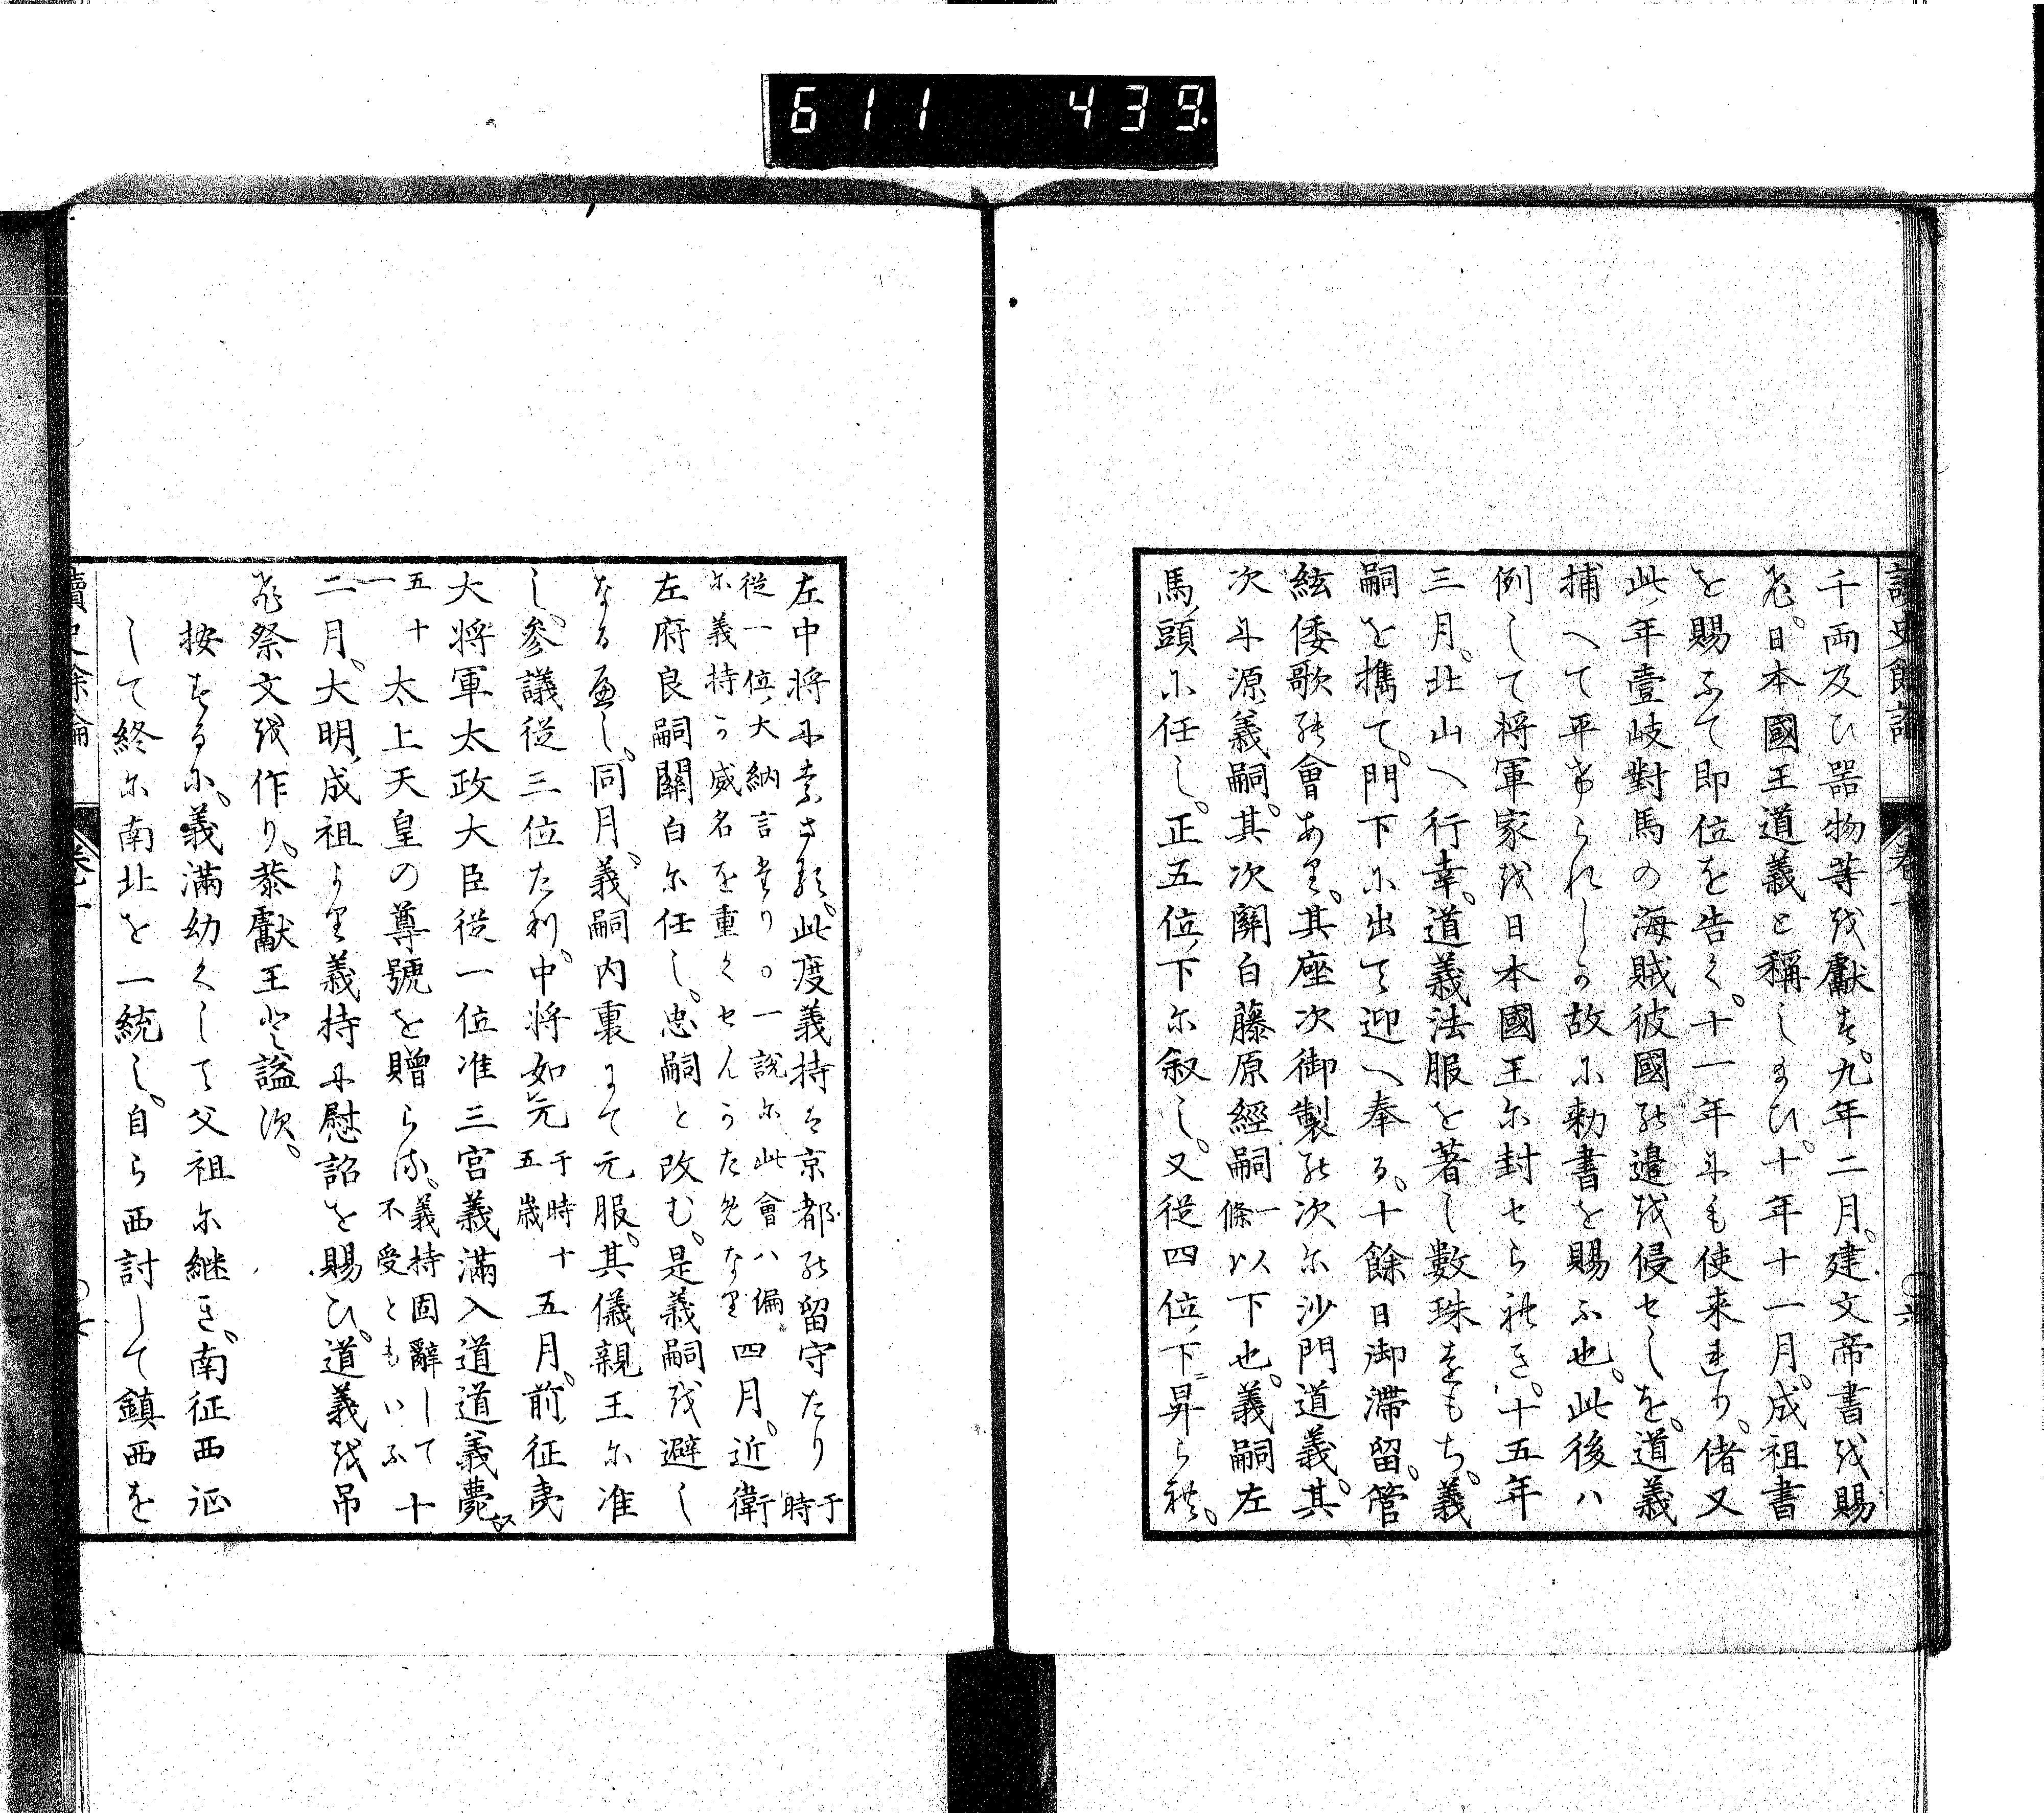 611 439
讀史餘論 卷十一 〇六
千両及ひ器物等を獻す。九年二月。建文帝書を賜
ひ。日本國王道義と稱し給ひ。十年十一月。成祖書
を賜ふて即位を告く。十一年にも使来れり。偖又
此年壹岐對馬の海賊彼國の邊を侵せしを。道義
捕へて平けられしか故に勅書を賜ふ也。此後ハ
例して将軍家を日本國王に封せられき。十五年
三月。北山へ行幸。道義法服を著し數珠をもち。義
嗣を携て。門下に出て迎へ奉る。十餘日御滞留。管
絃倭歌の會あり。其座次御製の次に沙門道義。其
次に源義嗣。其次關白藤原經嗣一條以下也。義嗣左
馬頭に任し。正五位下に叙し。又従四位下ニ昇られ。
左中将に拜さる。此度義持は京都の留守たり于時
従一位大納言たり。〇一説に此會ハ偏
に義持か威名を重くせんかためなり
四月。近衛
左府良嗣關白に任し。忠嗣と改む。是義嗣を避し
なるへし。同月。義嗣内裏にて元服。其儀親王に准
し。参議従三位たり。中将如元于時十五歳五月。前征夷
大将軍太政大臣従一位准三宮義満入道道義薨ス
五十一
太上天皇の尊號を贈らる。義持固辭して不受ともいふ十
二月。大明成祖より義持に慰詔を賜ひ。道義を吊
ひ祭文を作り。恭獻王と謚す。
按するに。義満幼くして父祖に継き。南征西征
して終に南北を一統し。自ら西討して鎮西を
讀史餘論 卷十一 〇七